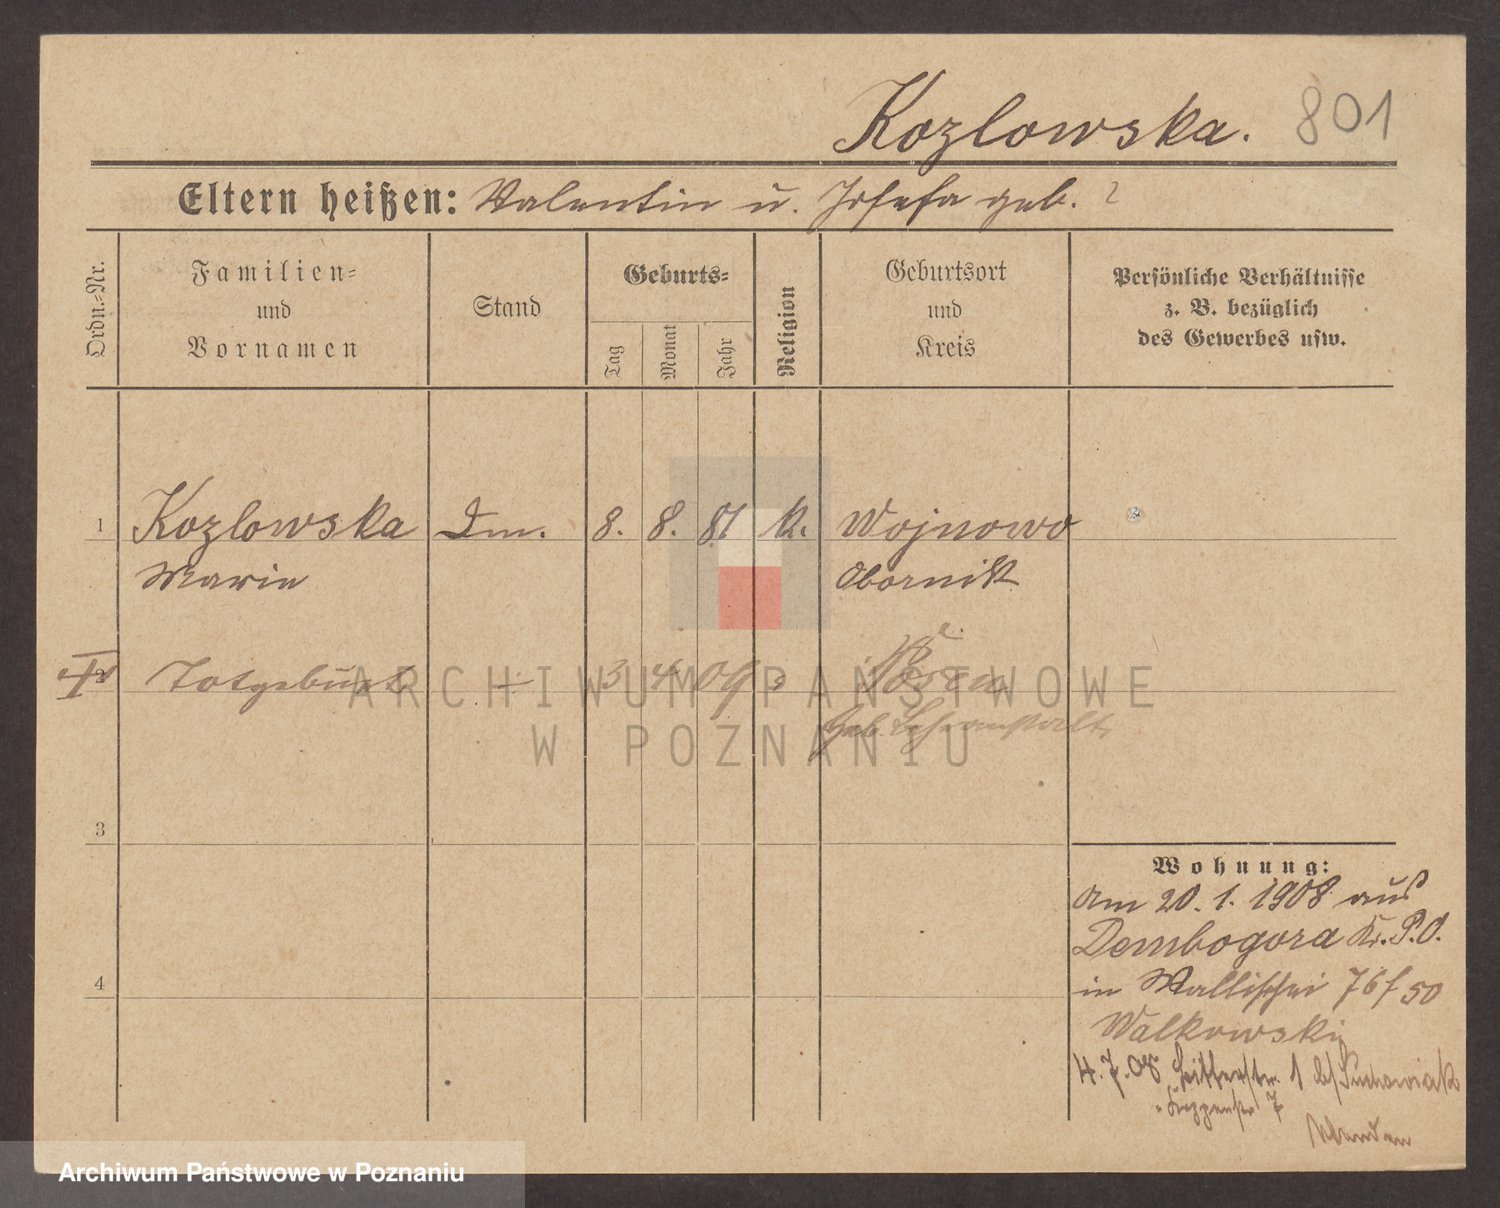 Kozlowska. 801
Eltern heißen: Valentin u. Josefa geb. ?
Ordn.=Nr.
Familien=
und
Vornamen
Stand
Geburts=
Tag
Monat
Jahr
Religion
Geburtsort
und
Kreis
Persönliche Verhältnisse
z. B. bezüglich
des Gewerbes usw.
1 Kozlowska Dm. 8. 8. 81 k. Wojnowo
Marie Obornik
2 Totgeburt + 3 4 09 Posen
Geb. Lehranstalt
ARCHIWUM PAŃSTWOWE
W POZNANIU
3
4
Wohnung:
Am 20. 1. 1908 aus
Dembogora Kr. P. O.
in Wallischei 76 f 50
Walkowski
4. 7. 08 1 b/Suchowiak
7
Archiwum Państwowe w Poznaniu